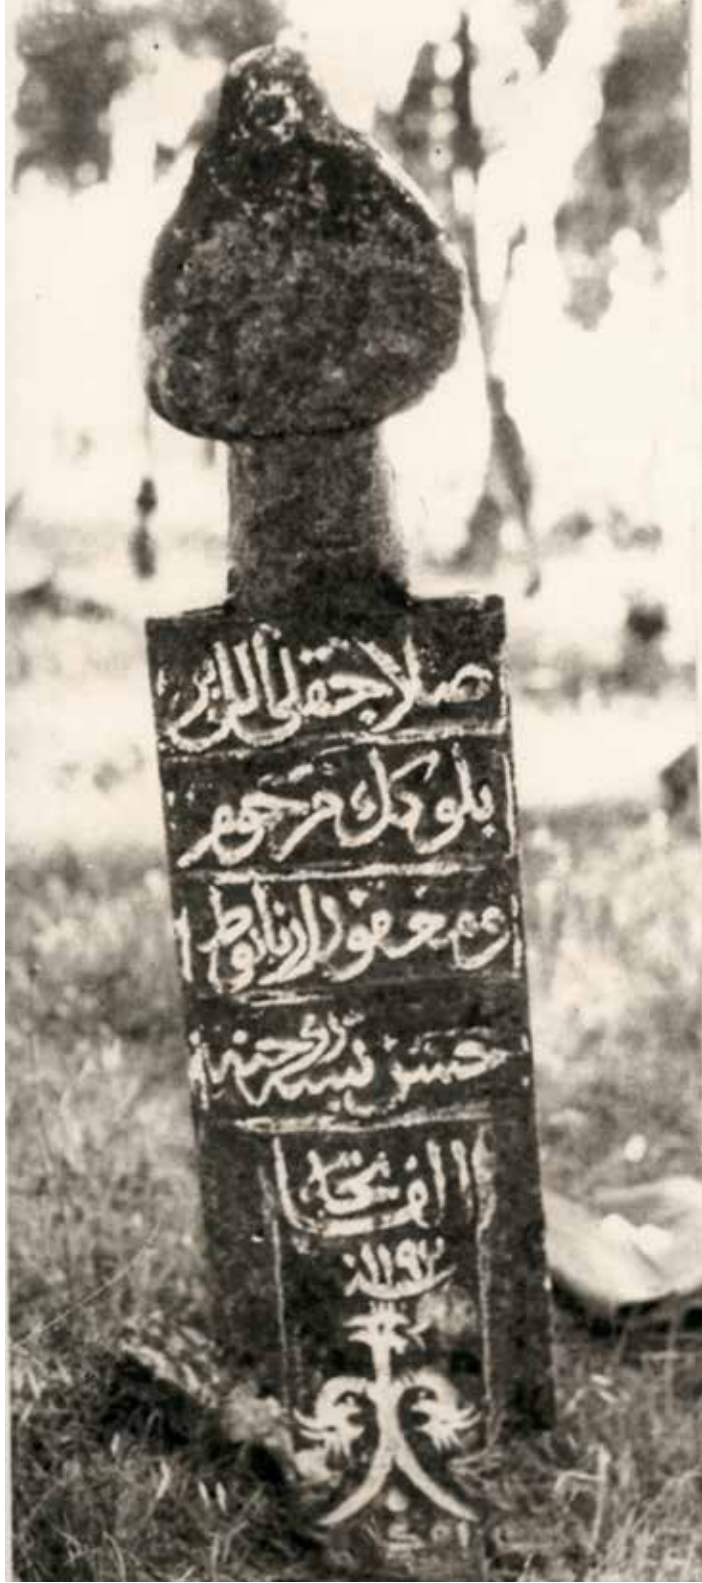 صلاجقلى اللى بر
بلوكك مرحوم
و مغفور ارناوط
حسن بشه روحنه
الفاتحه
سنه ١١٩٢